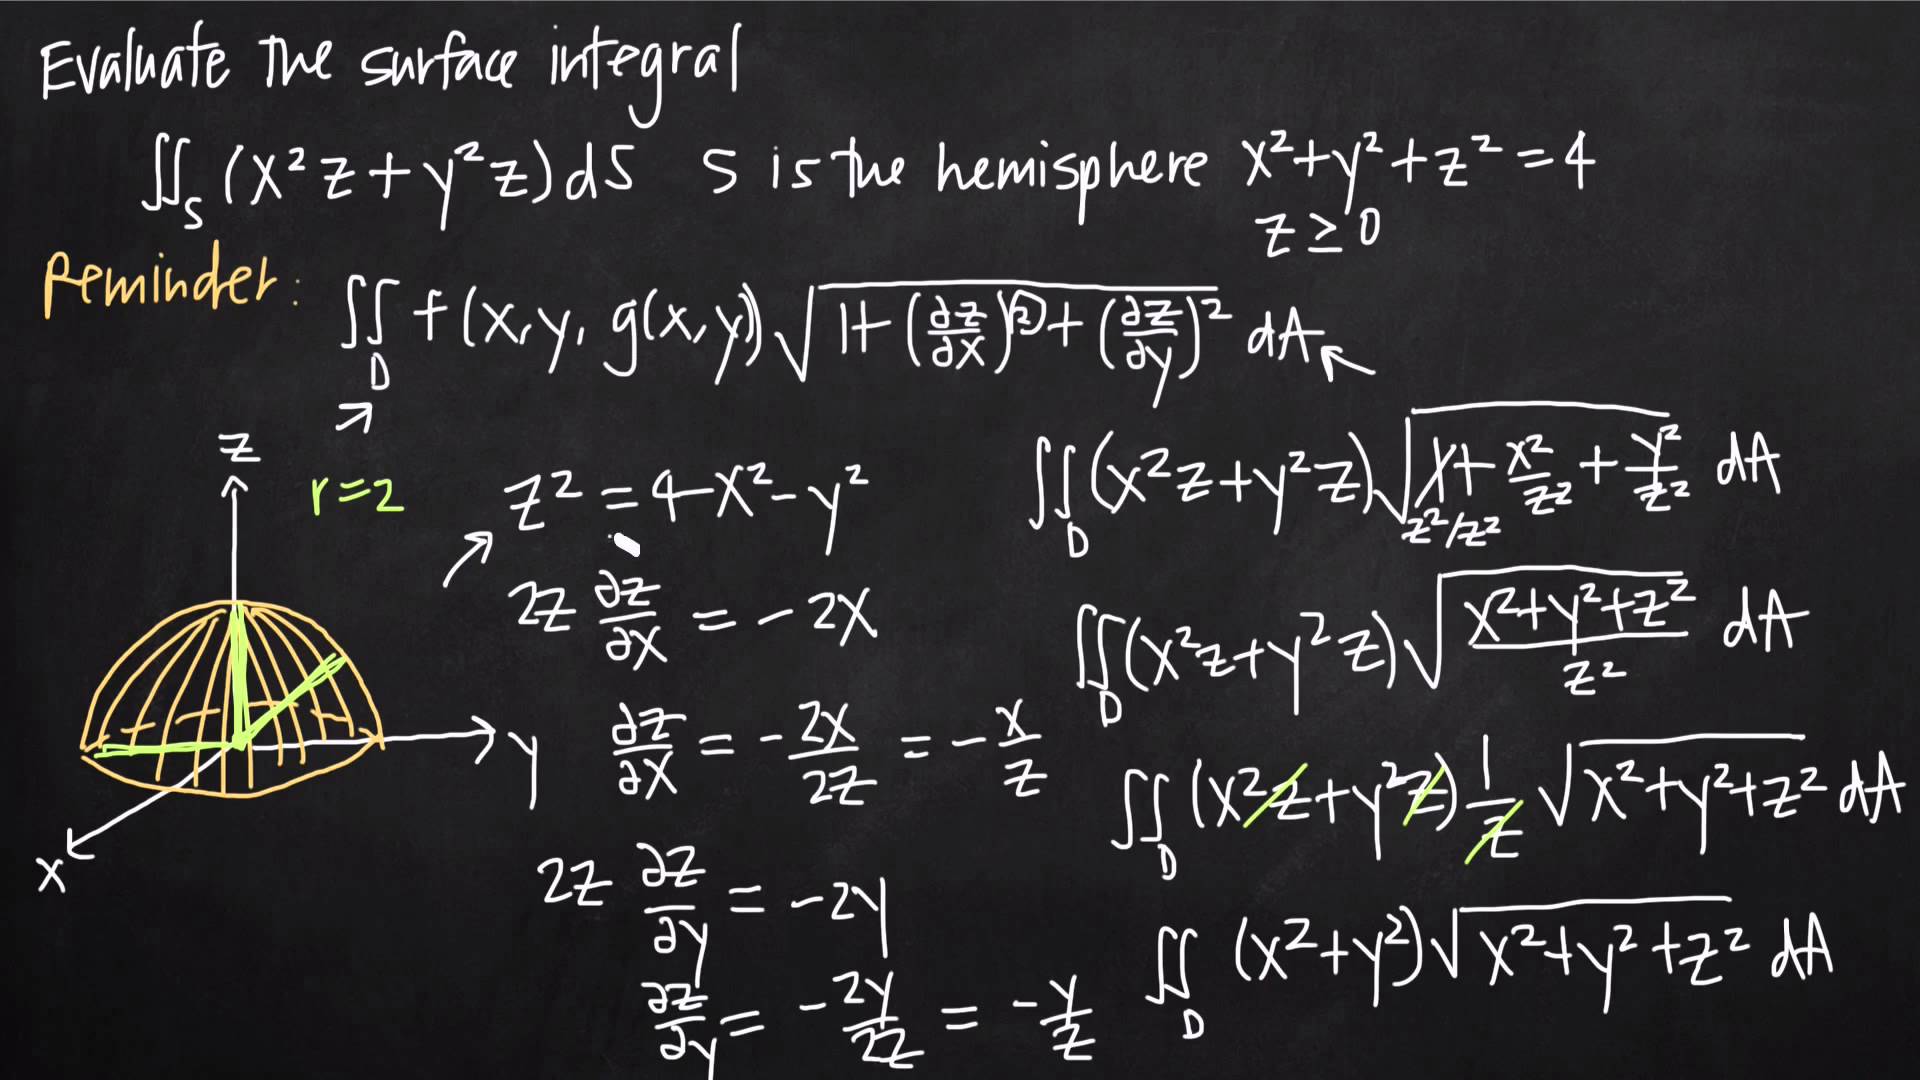 Evaluate the surface integral
∬_S (x²z + y²z) dS S is the hemisphere x² + y² + z² = 4
z ≥ 0
Reminder: ∬_D f(x, y, g(x, y)) √(1 + (∂z/∂x)² + (∂z/∂y)²) dA
z
r = 2
y
x
z² = 4 - x² - y²
2z ∂z/∂x = -2x
∂z/∂x = -2x/2z = -x/z
2z ∂z/∂y = -2y
∂z/∂y = -2y/2z = -y/z
∬_D (x²z + y²z) √(1 + x²/z² + y²/z²) dA
z²/z²
∬_D (x²z + y²z) √((x² + y² + z²)/z²) dA
∬_D (x²z + y²z) 1/z √(x² + y² + z²) dA
∬_D (x² + y²) √(x² + y² + z²) dA